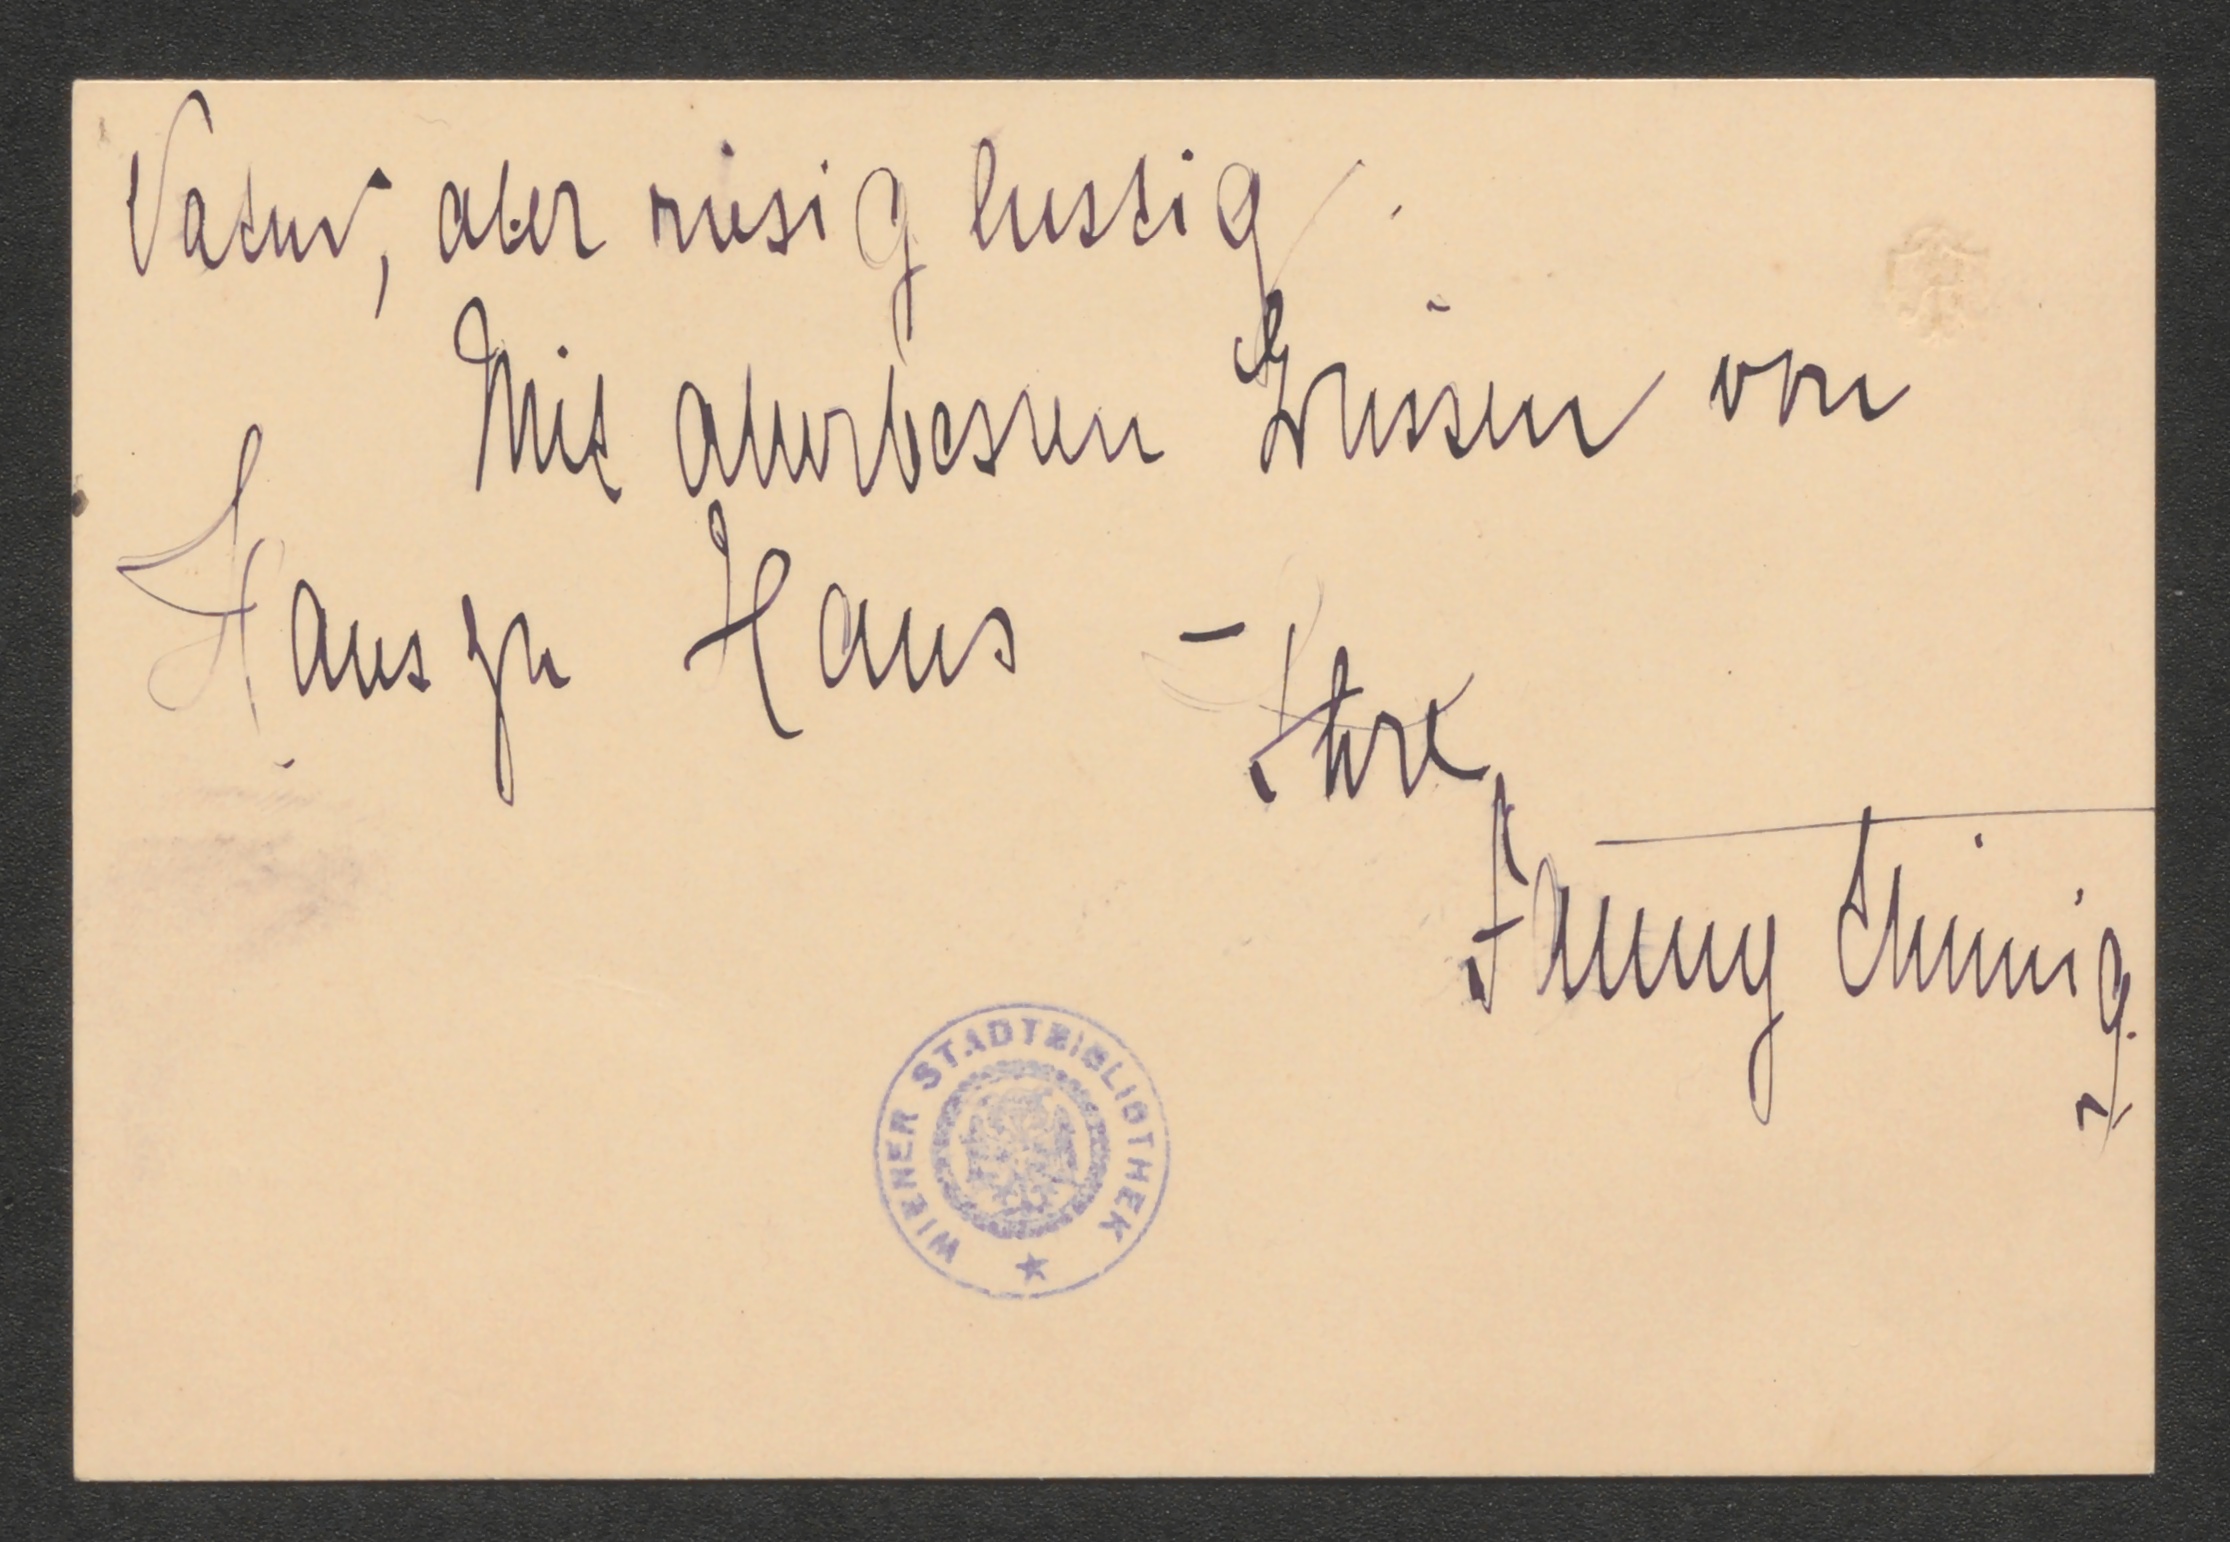 aber riesig lustig.
Mit allerbesten Grüssen von
Haus zu Haus –
Ihre
Fanny Thimig.
WIENER STADTBIBLIOTHEK